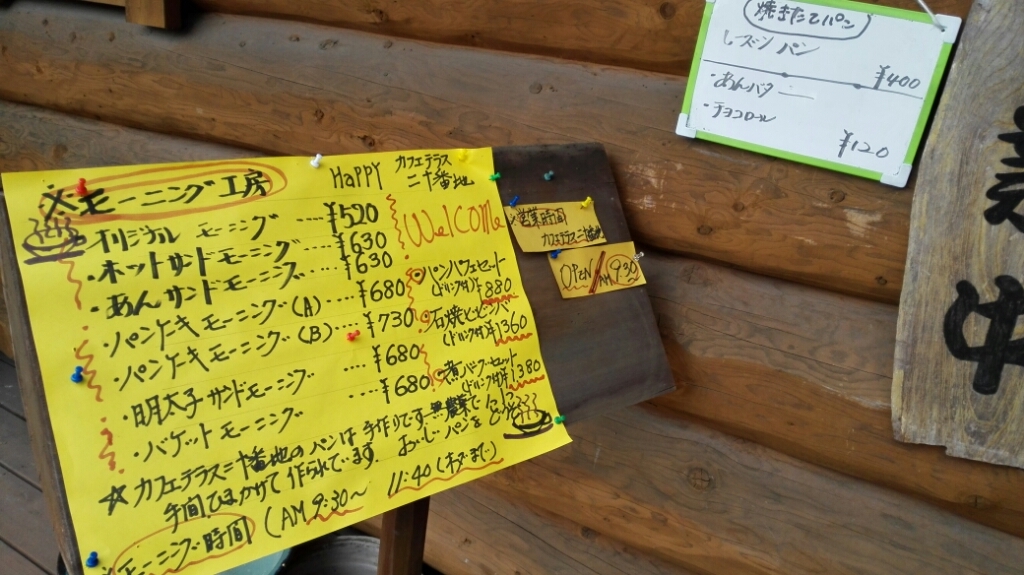 ※モーニング工房
HAPPY
カフェテラス
二十番地
Welcome
オリジナル モーニング ¥520
・ホットサンドモーニング ¥630
・あんサンドモーニング ¥630
・パンケーキモーニング(A) ¥680
・パンケーキモーニング(B) ¥730
・明太子サンドモーニング ¥680
・バケットモーニング ¥680
パンパフェセット
(ドリンク付)¥880
石焼ビビンバ
(ドリンク付)¥1360
バーグセット
(ドリンク付)¥1380
☆カフェテラス二十番地のパンは手作りです
手間ひまかけて作られています。おいしいパンを
※モーニング時間 (AM 9:30~ 11:40(オーダーまで)
※営業時間
カフェテラス二十番地
OPEN/AM9:30
焼きたてパン
レーズンパン
¥400
・あんバター
・チョコロール
¥120
中